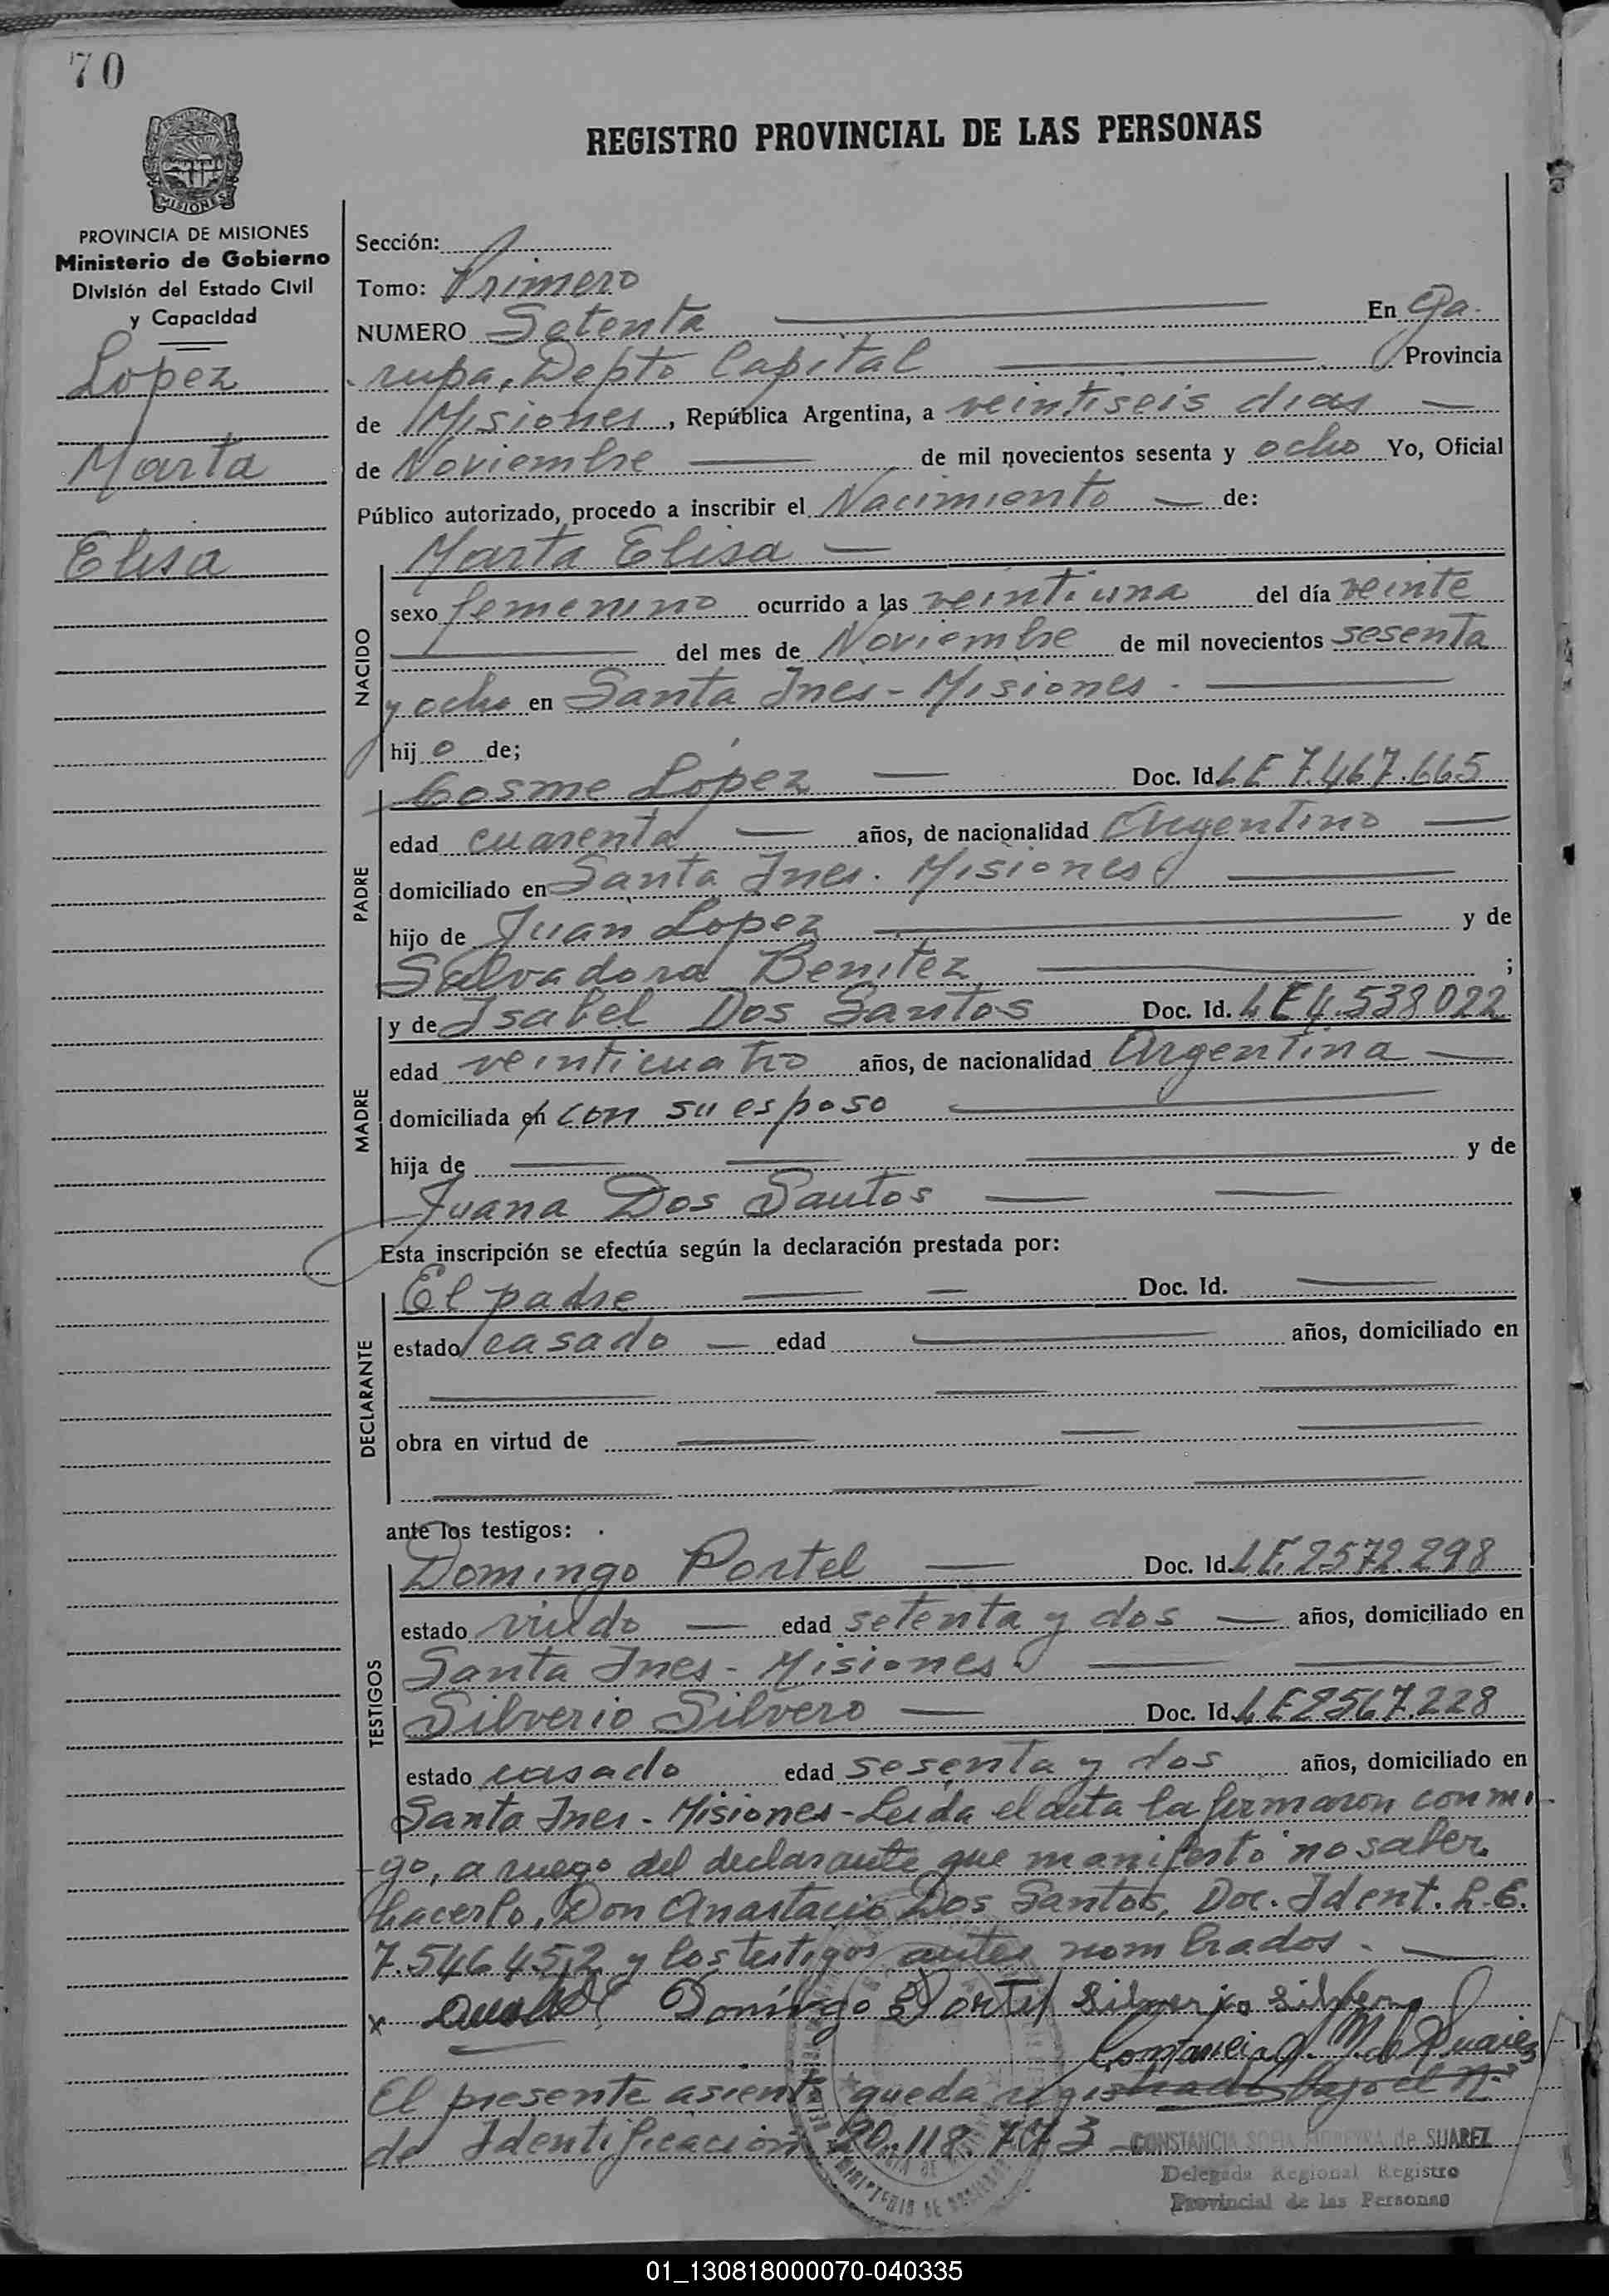 70
REGISTRO PROVINCIAL DE LAS PERSONAS
PROVINCIA DE MISIONES
Ministerio de Gobierno
División del Estado Civil
y Capacidad
Lopez
Marta
Elisa
Sección:
Tomo: Primero
NUMERO Setenta En Ga-
rupa, Depto Capital Provincia
de Misiones, República Argentina, a veintiseis dias
de Noviembre de mil novecientos sesenta y ocho Yo, Oficial
Público autorizado, procedo a inscribir el Nacimiento de:
Marta Elisa
NACIDO
sexo femenino ocurrido a las veintiuna del día veinte
del mes de Noviembre de mil novecientos sesenta
y ocho en Santa Ines - Misiones.
hij o de;
Cosme López Doc. Id. LE 7.467.665
PADRE
edad cuarenta años, de nacionalidad Argentino
domiciliado en Santa Ines. Misiones
hijo de Juan Lopez y de
Salvadora Benitez ;
y de Isabel Dos Santos Doc. Id. LE 4.538.022
MADRE
edad veinticuatro años, de nacionalidad Argentina
domiciliada en con su esposo
hija de y de
Juana Dos Santos
Esta inscripción se efectúa según la declaración prestada por:
El padre Doc. Id.
DECLARANTE
estado casado edad años, domiciliado en
obra en virtud de
ante los testigos:
Domingo Portel Doc. Id. LE. 2572.298
TESTIGOS
estado viudo edad setenta y dos años, domiciliado en
Santa Ines - Misiones.
Silverio Silvero Doc. Id. LE 2567.228
estado casado edad sesenta y dos años, domiciliado en
Santa Ines - Misiones - Leida el acta la firmaron conmi-
go, a ruego del declarante que manifestó no saber
hacerlo, Don Anastacio Dos Santos, Doc. Ident. L.E.
7.546.452 y los testigos antes nombrados.
x Domingo Portel Silverio Silvero
Constancia S. M. de Suarez
El presente asiento queda registrado bajo el Nº
de Identificación 20.118.773
CONSTANCIA SOFIA MOREYRA de SUAREZ
Delegada Regional Registro
Provincial de las Personas
01_130818000070-040335